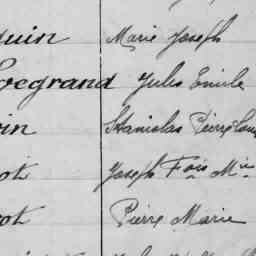 quin Marie Joseph
Legrand Jules Emile
in Stanislas Pierre Louis
ot Joseph Fois Mie
ot Pierre Marie